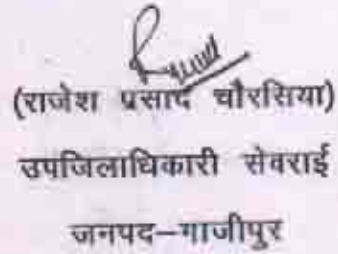 (राजेश प्रसाद चौरसिया)
उपजिलाधिकारी सेवराई
जनपद–गाजीपुर